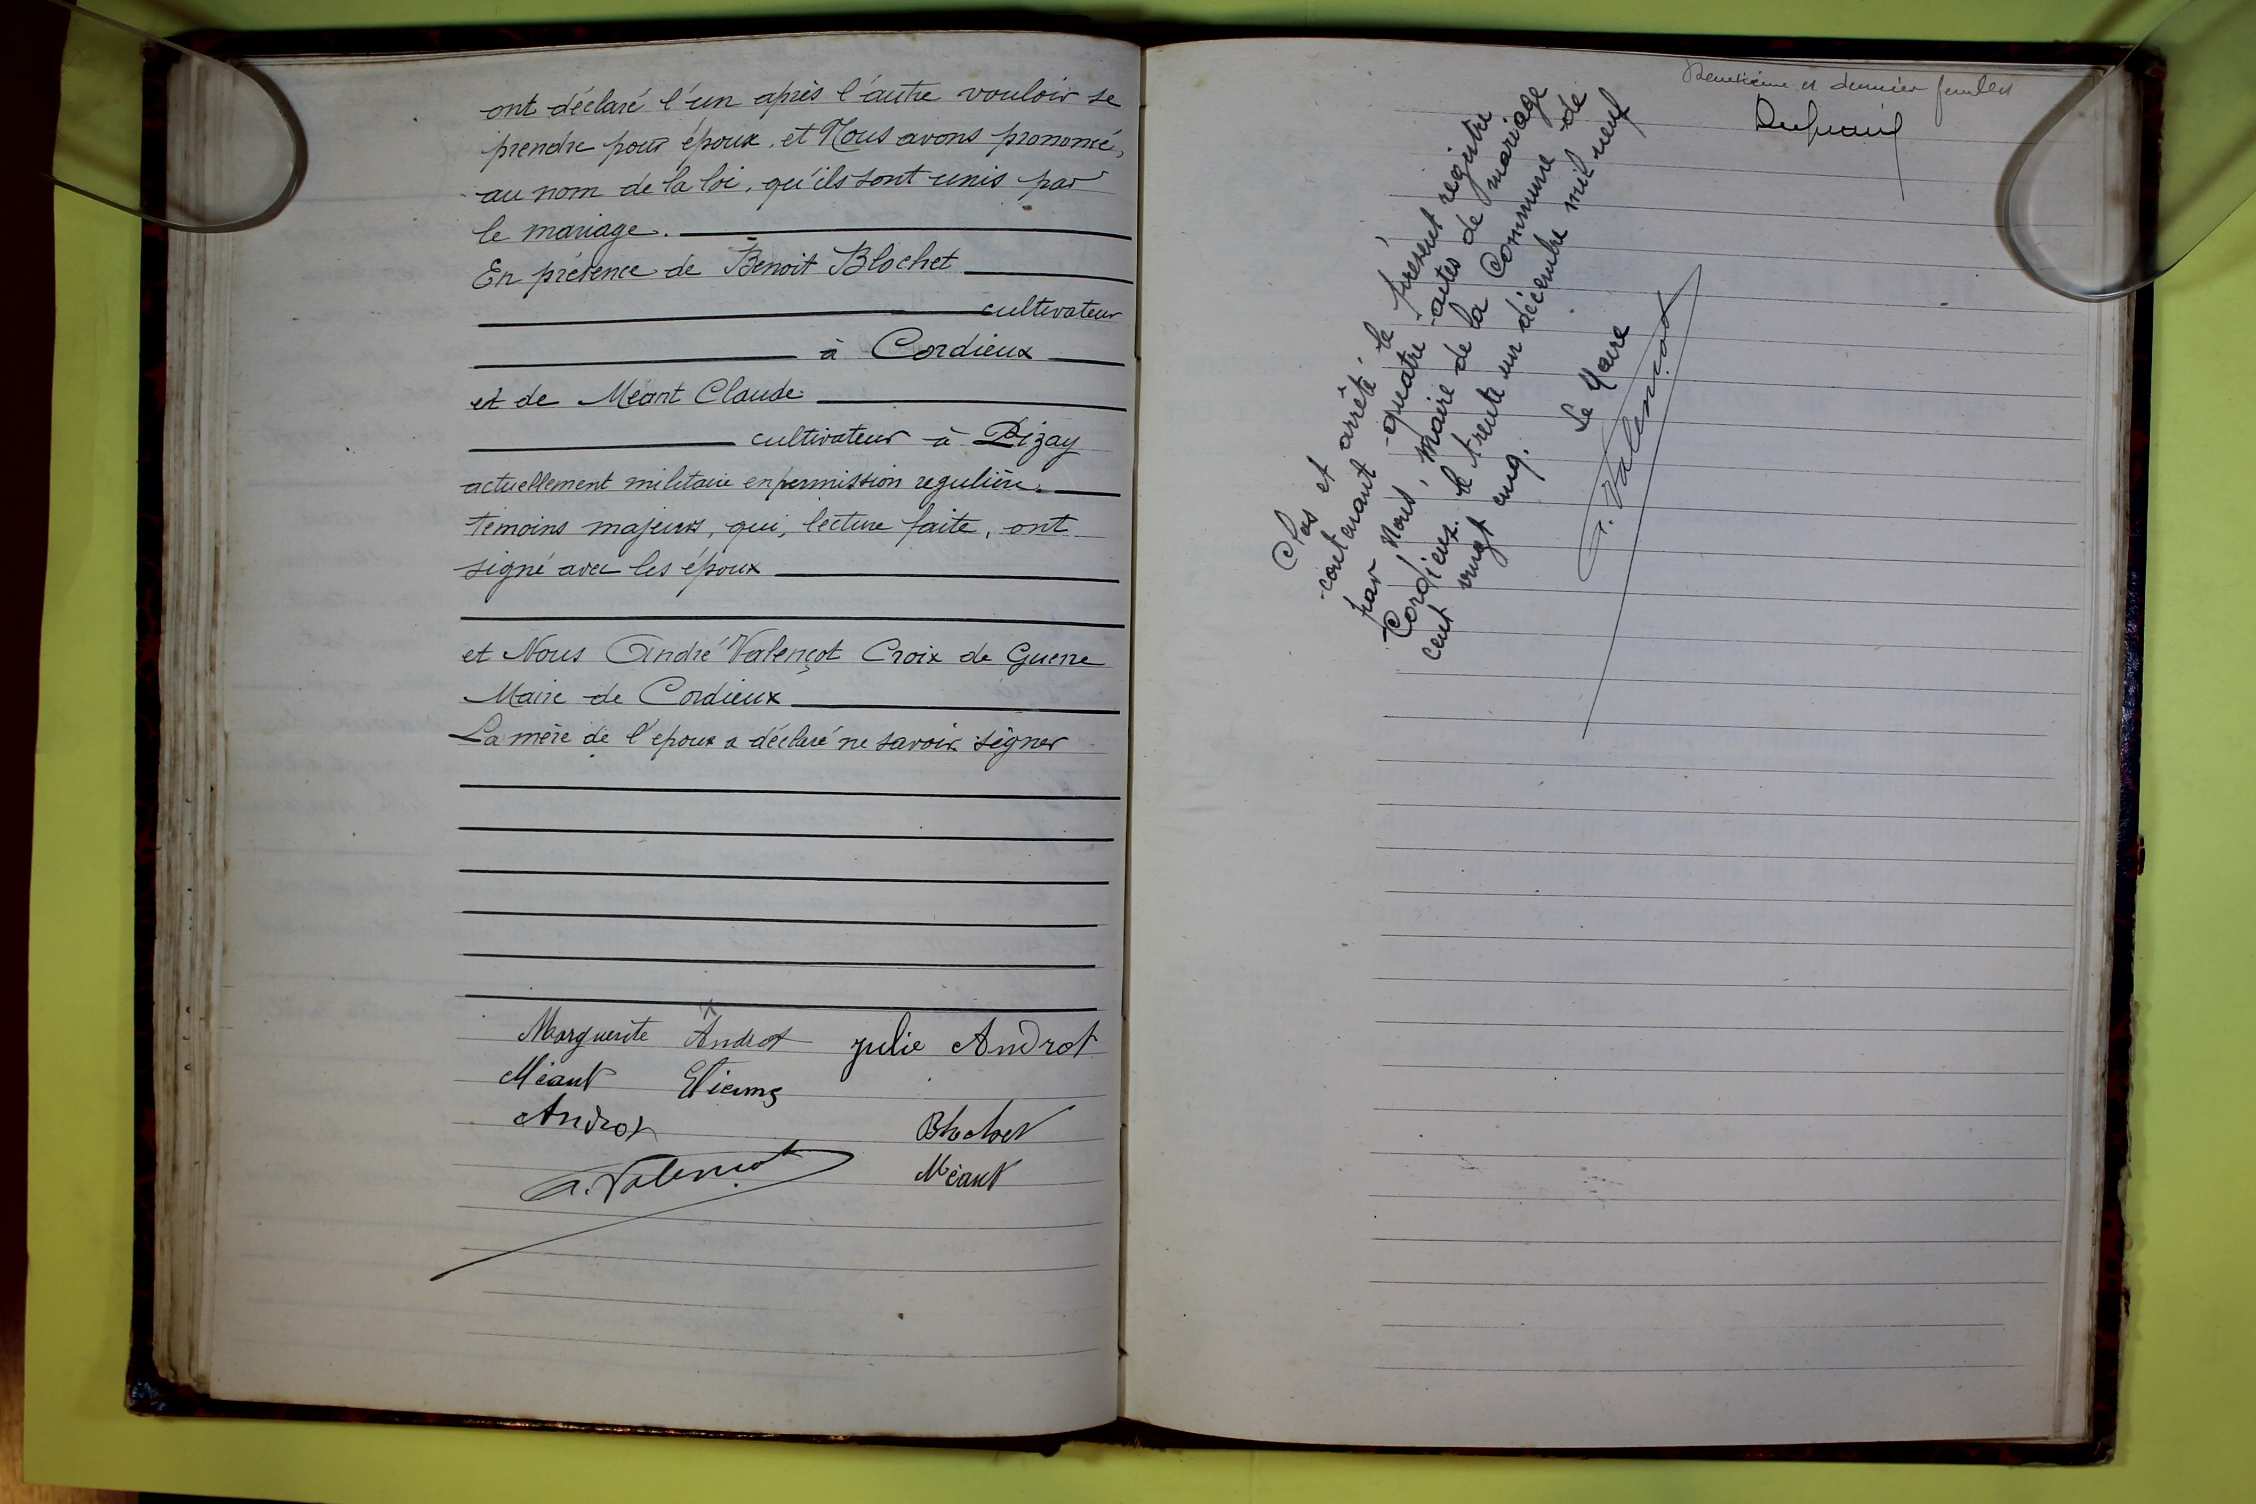 ont déclaré l'un après l'autre vouloir se
prendre pour époux, et Nous avons prononcé,
au nom de la loi, qu'ils sont unis par
le mariage.
En présence de Benoit Blochet
cultivateur
à Cordieux
et de Méant Claude
cultivateur à Pizay
actuellement militaire en permission regulière.
témoins majeurs, qui, lecture faite, ont
signé avec les époux
et Nous André Valençot Croix de Guerre
Maire de Cordieux
La mère de l'époux a déclaré ne savoir signer
Marguerite Androt julie Androt
Méant Etienne
Androt Blochet
A. Valençot Méant
et dernier feuillet
Clos et arrêté, le présent registre
contenant quatre actes de mariage
par Nous, maire de la Commune de
Cordieux, le trente un décembre mil neuf
cent vingt cinq.
Le Maire
A. Valençot